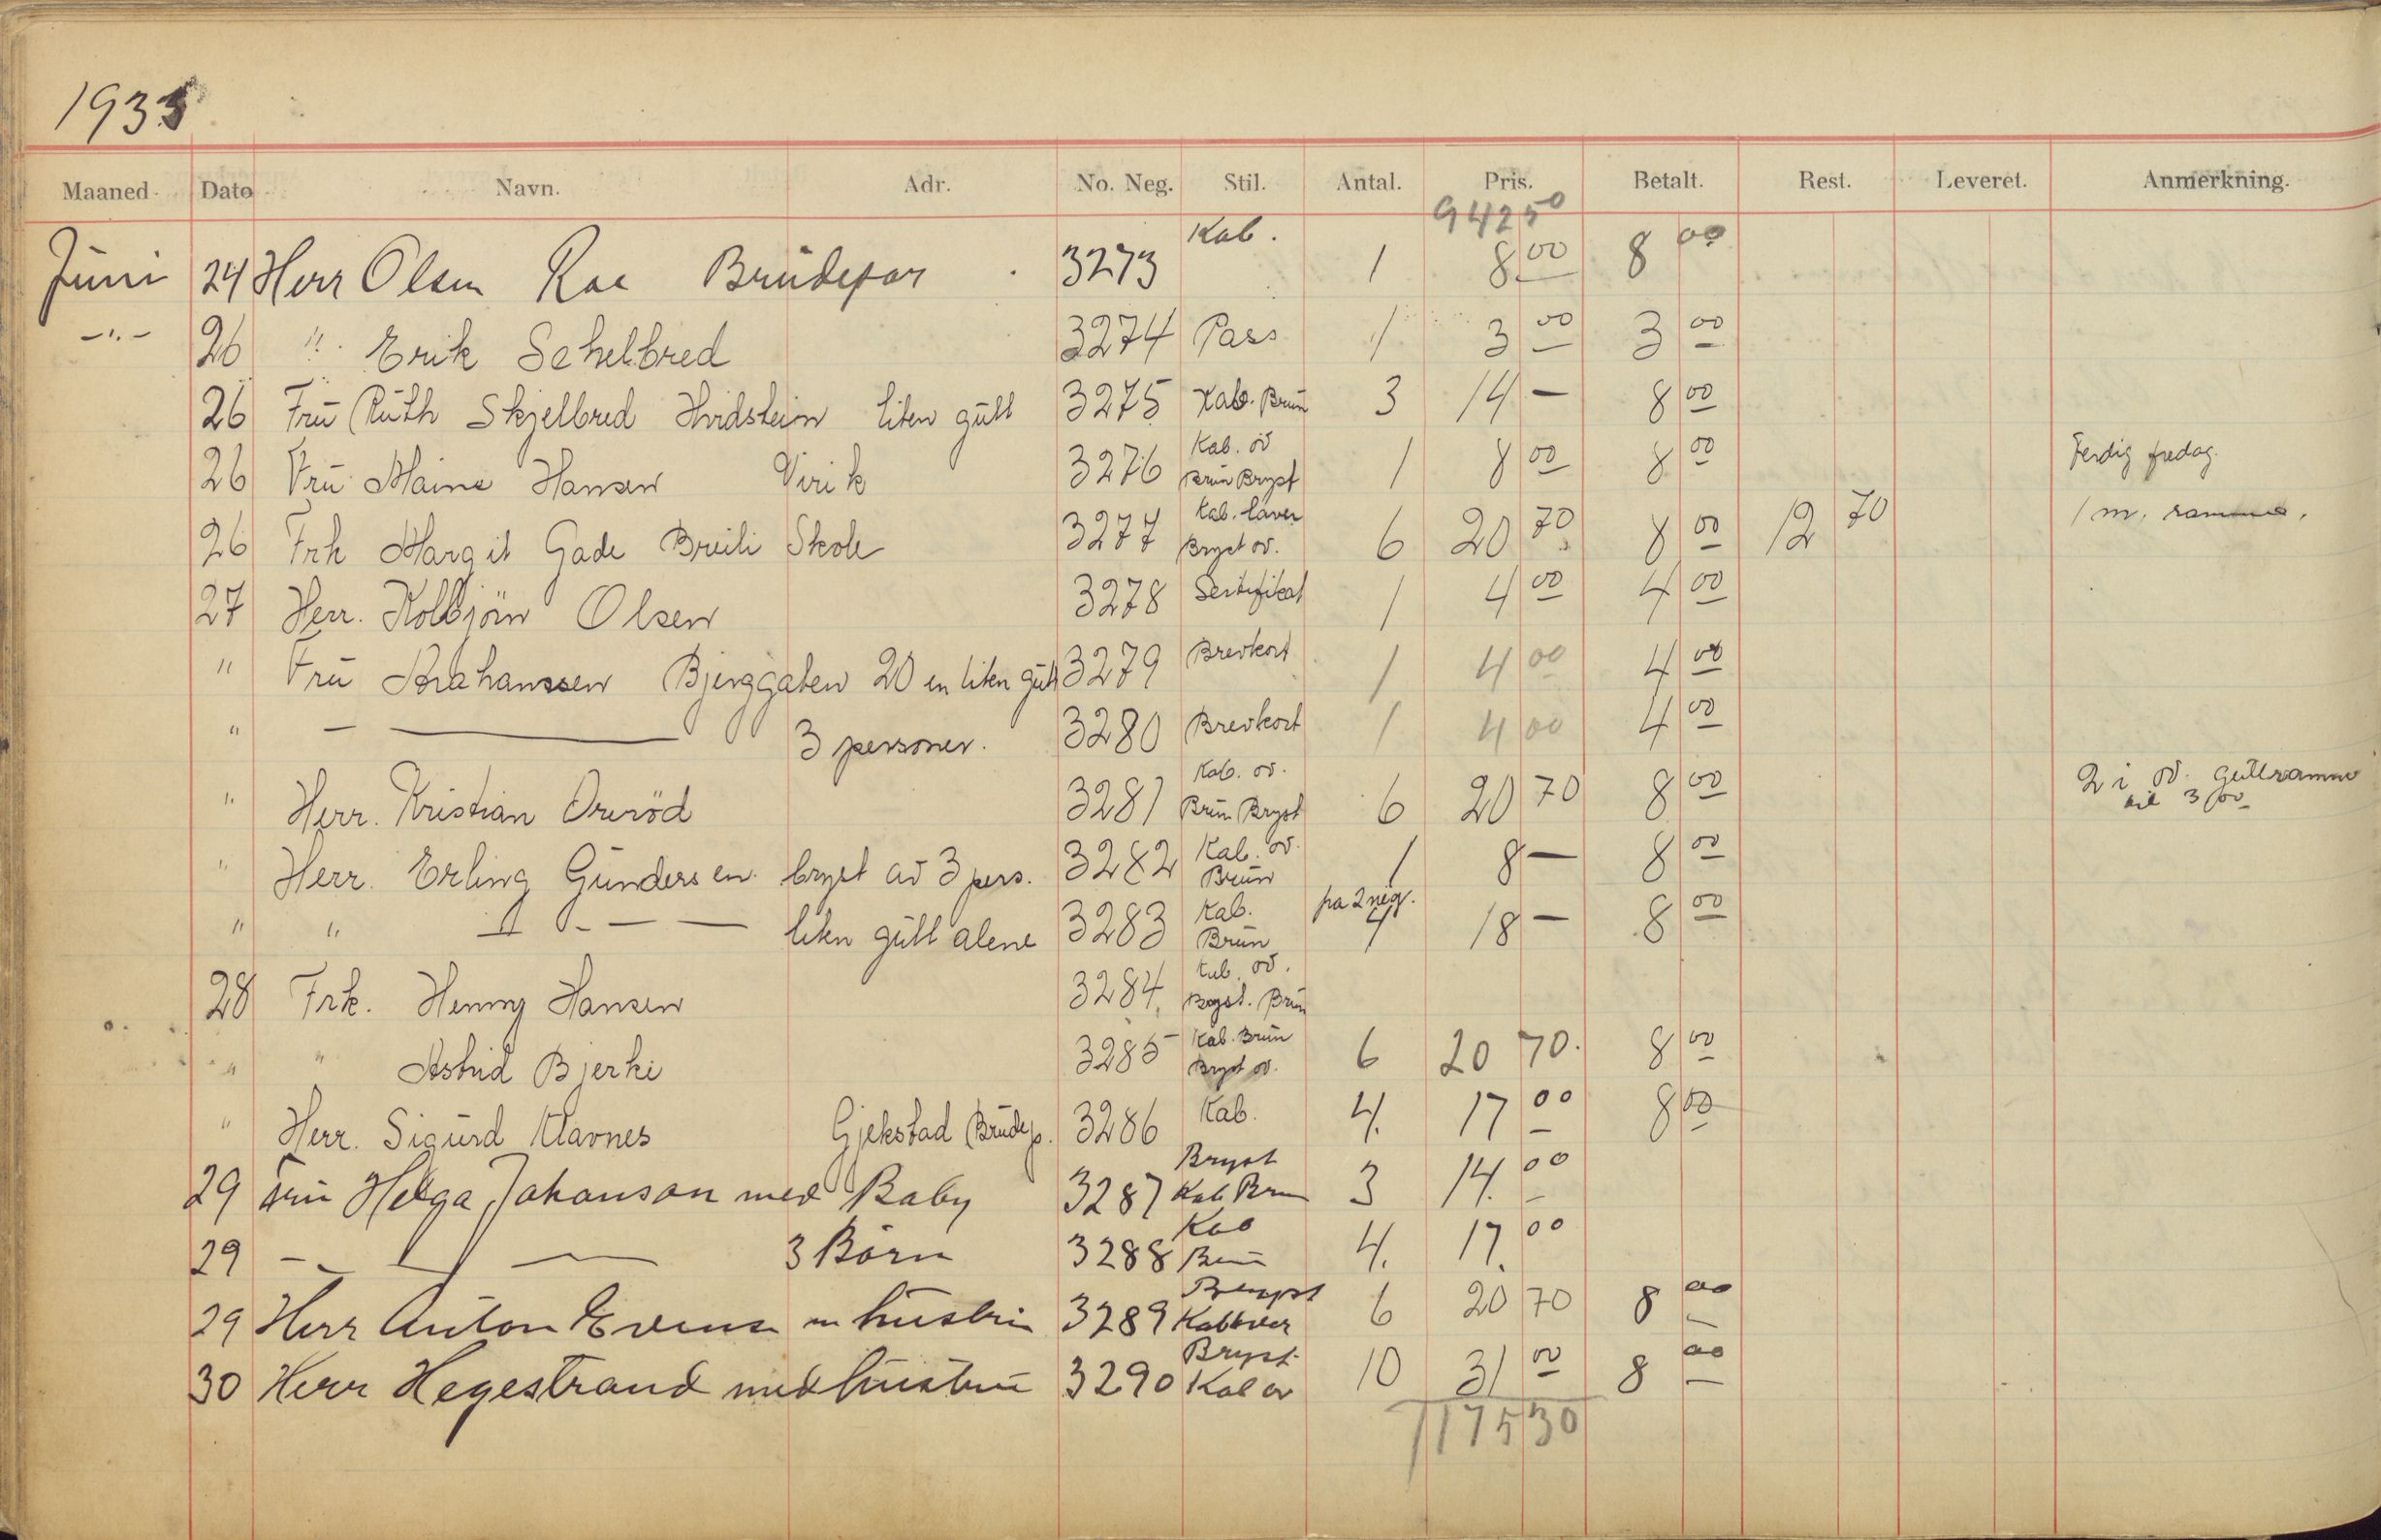 1933
Maaned Dato Navn. Adr. No. Neg. Stil. Antal. Pris. Betalt. Rest. Leveret. Anmerkning.
942 50
Juni 24 Herr Olsen Roa Brüdepar 3273 Kab. 1 8 00 8 00
-"- 26 " Erik Schelbred 3274 Pass 1 3 00 3 00
26 Frü Rüth Skjelbred Hvidstein liten gütt 3275 Kab. Brün 3 14 — 8 00
26 Frü Maine Hansen Virik 3276 Kab. ov Brün Bryst 1 8 00 8 00 Ferdig fredag.
26 Frk Margit Gade Breili Skole 3277 Kab. laver Bryst ov. 6 20 70 8 00 12 70 1 m. ramme.
27 Herr. Kolbjörn Olsen 3278 Sertifikat 1 4 00 4 00
" Frü Abrahamssen Bjerggaten 20 en liten gütt 3279 Brevkort 1 4 00 4 00
" — — 3 personer. 3280 Brevkort 1 4 00 4 00
" Herr. Kristian Overöd 3281 Kab. ov. Brün Bryst 6 20 70 8 00 2 i ov. güllramme til 3 00
" Herr. Erling Gündersen bryst av 3 pers. 3282 Kab. ov. Brün 1 8 — 8 00
" " — " — — liten gütt alene 3283 Kab. Brün pa 2 neg. 4 18 — 8 00
28 Frk. Henny Hansen 3284 Kab. ov. Bryst. Brün
" " Astrid Bjerke 3285 Kab. Brün Bryst ov. 6 20 70. 8 00
" Herr. Sigürd Klavnes Gjekstad (Brüdep. 3286 Kab. 4. 17 00 8 00
29 Frü Helga Johanson med Baby 3287 Bryst Kab Brun 3 14. 00
29 — " — 3 Börn 3288 Kab Brün 4. 17. 00
29 Herr Anton Evensen m hüstrü 3289 Bryst Kab 6 20 70 8 00
30 Herr Hegestrand med hüstrü 3290 Bryst Kab ov 10 31 00 8 00
1175 30